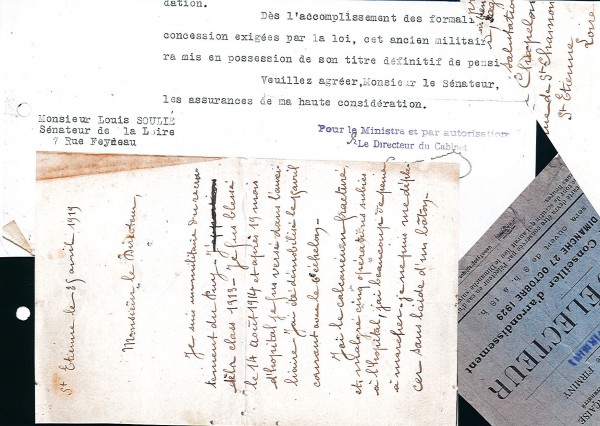 dation.
Dès l'accomplissement des formali
concession exigées par la loi, cet ancien militair
ra mis en possession de son titre définitif de pensi
Veuillez agréer, Monsieur le Sénateur,
les assurances de ma haute considération.
Monsieur Louis SOULIÉ
Sénateur de la Loire
7 Rue Feydeau
Pour le Ministre et par autorisation
Le Directeur du Cabinet
salutation
Chapelon
rue de St Chamon
St Etienne
Loire
St Etienne le 25 avril 1919
Monsieur le Directeur,
Je suis monmilitaire du recru
tement du Puy-
de la class 1913 - Je fus blessé
le 14 Août 1914 et après 19 mois
d'hopital je fus versé dans l'auxi
liaire j'ai été démobilisé le avril
courant avec le echelon -
J'ai le calcanéum fracturé,
et, malgré cinq opérations subies
à l'hopital, j'ai beaucoup de peine
à marcher; je ne puis me dépla-
cer sans l'aide d'un bâton -
Conseiller d'arrondissement
DIMANCHE 27 OCTOBRE 1929
sera ouvert de 8 h à 18 h
ÉLECTEUR
FIRMINY